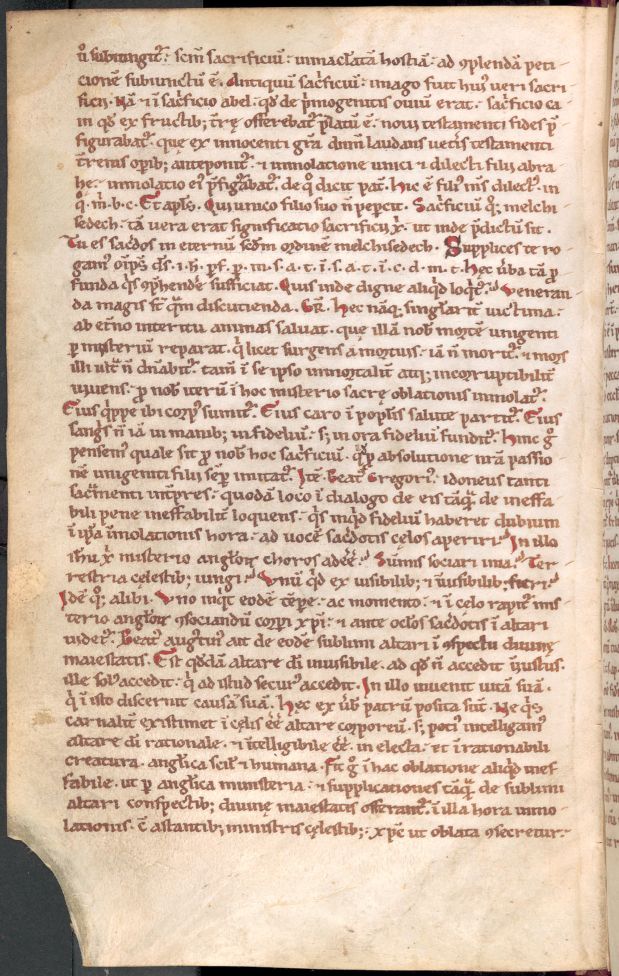 n̄ subiungit᷑. scm̄ sacrificiū. inmac̄latā hostiā. ad ꝯplendā peti
cionē subiunctū ē. Antiquū sac̄ficiū. imago fuit hui᷒ veri sacri
ficii. Nā ⁊ ī sac̄ficio abel. qđ de p̄mogenitis ouiū erat. sac̄ficio ca
in qđ ex fructib; t̄rę offerebat᷑ p̄latū ē. noui testamenti fides p̄
figurabat᷑. que ex innocenti gr̄a dn̄m laudans uet̄is testamenti
t̄renis opib; anteponit᷑. ⁊ inmolatione unici ⁊ dilecti filii abra
he. inmolatio ei᷒ p̄fiḡabat᷑. de q̊ dicit pat̄. hic ē fili᷒ m̄s dilect᷒. in
q̊. m̄. b. c. Et apl̄s. Qui unico filio suo n̄ pepcit. Sac̄ficiū q;. melchi
sedech. tā vera erat significatio sacrificii x̄. ut inde p̄dictū sit.
Tu es sac̄dos in eternū scdm̄ ordinē melchisedech. Supplices te ro
gam᷒ om̄ps d̄s. i. h. pf. p. m. s. a. t. ī. s. a. t. ī. c. d. m. t. hęc ūba tā ꝓ
funda q̊s ꝯphende sufficiat. Quis inde digne aliqđ loq̄t᷑. Veneran
da magis st̄ q̄m discutienda. Gr̄. hęc nāq; singlarit̄ uictima.
ab et̄no interitu animas saluat. quę illā nob̄ mortē unigeniti
ꝑ misteriū reparat. q̊ licet surgens a mortuis. iā n̄ morit᷑. ⁊ mors
illi ult̄ n̄ dn̄abit᷑. tam̄ ī se ipso inmortalit̄ atq; incorruptibilit̄
uiuens. ꝓ nob̄ iterū ī hoc misterio sacrę oblationis inmolat᷑.
Eius q̊ppe ibi corp᷒ sumit᷑. Eius caro ī popl̄is salute partit᷑. Eius
sangs̄ n̄ iā in manib; infideliū. s; in ora fideliū fundit᷑. hinc g̊
pensem᷒ quale sit ꝓ nob̄ hoc sac̄ficiū. qđ ꝓ absolutione nr̄a passio
nē unigeniti filii semꝑ imitat᷑. Itē. Beat᷒ Gregori᷒. idoneus tanti
sac̄menti int̄pres. quodā loco ī dialogo de eis tāq̄. de ineffa
bili pene ineffabilit̄ loquens. q̊s inqđ fideliū haberet dubium
ī ip̄a inmolationis hora. ad uocē sac̄dotis cęlos aperiri. In illo
ih̄u x̄ misterio angl̄oꝝ choros adeē. Sumis sociari ima. Ter
restria cęlestib; iungi. Vnū qđ ex uisibilib; ⁊ īuisibilib; fieri.
Idē q;. alibi. Vno inqt̄ eodē tēpe. ac momento. ⁊ ī celo rapit᷑ mis
terio angl̄oꝝ ꝯsociandū corpi xp̄i. ⁊ ante ocl̄os sac̄dotis ī altari
uidet᷑. Beat᷒ aug᷒tin᷒ ait de eodē sublimi altari ī ꝯspectu diuinę
maiestatis. Est qđdā altare dī inuisibile. ad qđ n̄ accedit īiustus.
ille sol᷒ accedit. q̊ ad istud secur᷒ accedit. In illo inuenit uitā suā.
q̊ ī isto discernit causā suā. hęc ex ūb̄ patrū posita sūt. Ne q̊s
carnalit̄ existimet ī cęlis eē altare corporeū. s; poti᷒ intelligam᷒
altare dī rationale. ⁊ intelligibile eē. in electa. ⁊ ī rationabili
creatura. angl̄ica scil̄ ⁊ humana. Fit g̊ ī hac oblatione aliqđ inef
fabile. ut ꝑ angl̄ica ministeria. ⁊ supplicationes tāq̄. de sublimi
altari conspectib; diuinę maiestatis offerant᷑. ī illa hora inmo
lationis. ē astantib; ministris cęlestib;. xp̄e ut oblata ꝯsecretur.